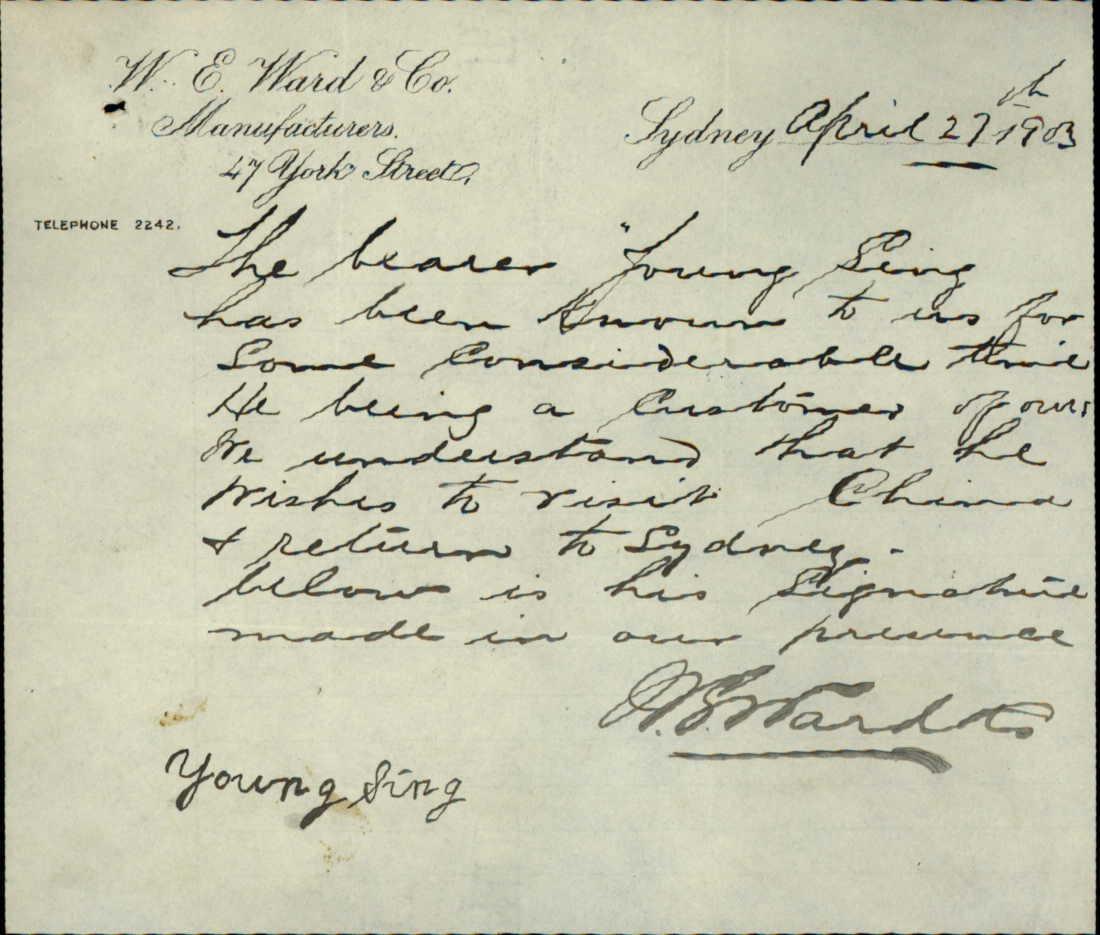 W. E. Ward & Co.
Manufacturers.
47 York Street,
Sydney April 27th 1903
TELEPHONE 2242.
The bearer "Young Sing
has been known to us for
some considerable time
He being a customer of ours
We understand that he
wishes to visit China
& return to Sydney.-
below is his signature
made in our presence
W.E. Ward & Co
Young Sing